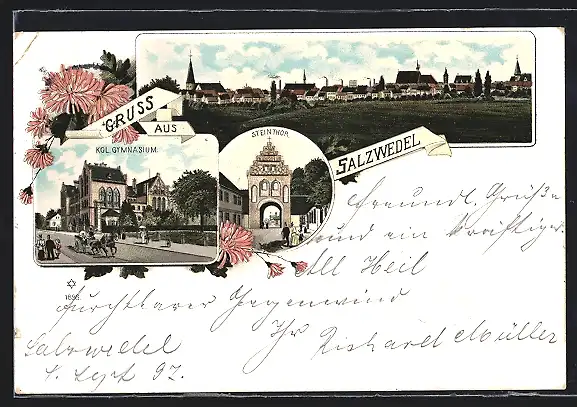 GRUSS
AUS
SALZWEDEL
KGL. GYMNASIUM.
STEINTHOR.
Freundl. Grüße
und ein kräftiges
All Heil
1898.
furchtbarer Gegenwind
Ihr Richard Müller
Salzwedel
4. Sept 97.